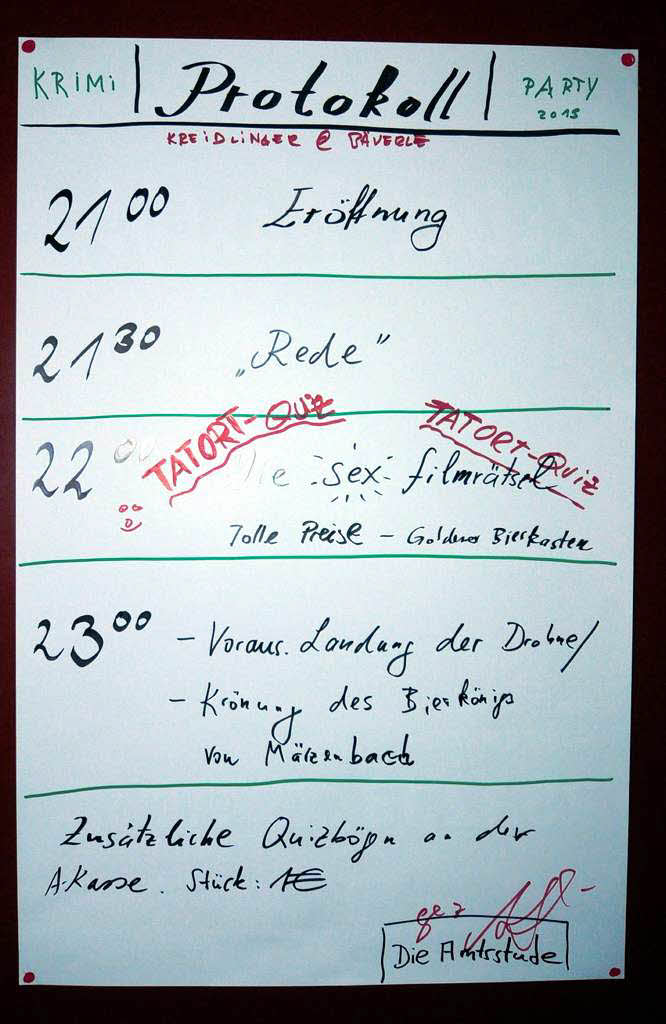 KRIMI | Protokoll | PARTY 2013
KREIDLINGER @ BÄUERLE
21⁰⁰ Eröffnung
21³⁰ „Rede“
TATORT-QUIZ TATORT-QUIZ
22⁰⁰ Die sex filmrätsel
Tolle Preise – Goldener Bierkasten
23⁰⁰ – Voraus. Landung der Drohne/
– Krönung des Bierkönigs
von Märzenbach
Zusätzliche Quizbögen an der
A-Kasse. Stück: 1€
gez
Die Amtsstude